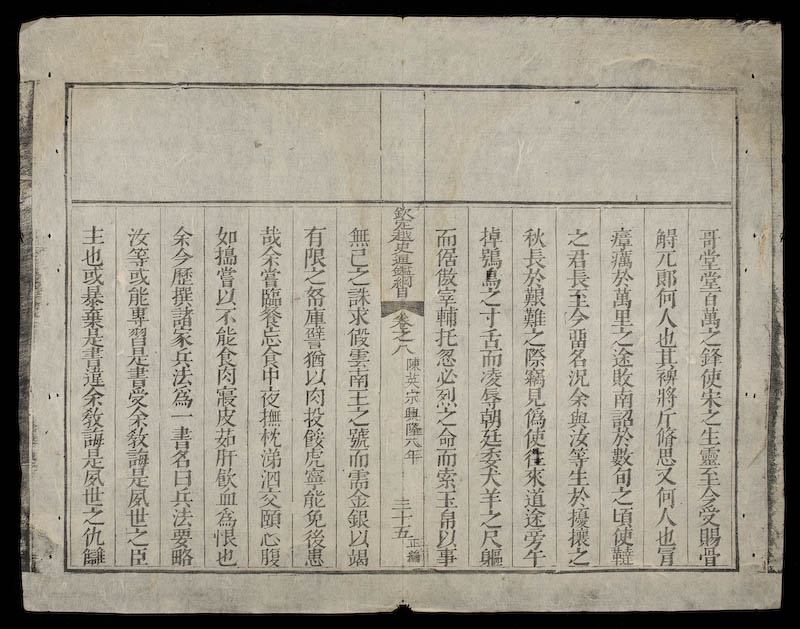 哥堂堂百萬之鋒使宋之生靈至今受賜骨
䚟兀郎何人也其裨將斤脩思又何人也冐
瘴癘於萬里之途敗南詔於數旬之頃使韃
之君長至今畱名況余與汝等生於擾攘之
秋長於艱難之際竊見偽使徃來道途旁午
掉鴞鳥之寸舌而凌辱朝廷委犬羊之尺軀
而倨傲宰輔托忽必烈之命而索玉帛以事
欽定越史通鑑綱目 卷之八 陳英宗興隆八年 三十五 正編
無已之誅求假雲南王之號而需金銀以竭
有限之帑庫譬猶以肉投餒虎寧能免後患
哉余嘗臨餐忘食中夜撫枕涕泗交頤心腹
如搗嘗以不能食肉寢皮茹肝飲血爲恨也
余今歷撰諸家兵法爲一書名曰兵法要略
汝等或能專習是書受余敎誨是夙世之臣
主也或暴棄是書違余敎誨是夙世之仇讎